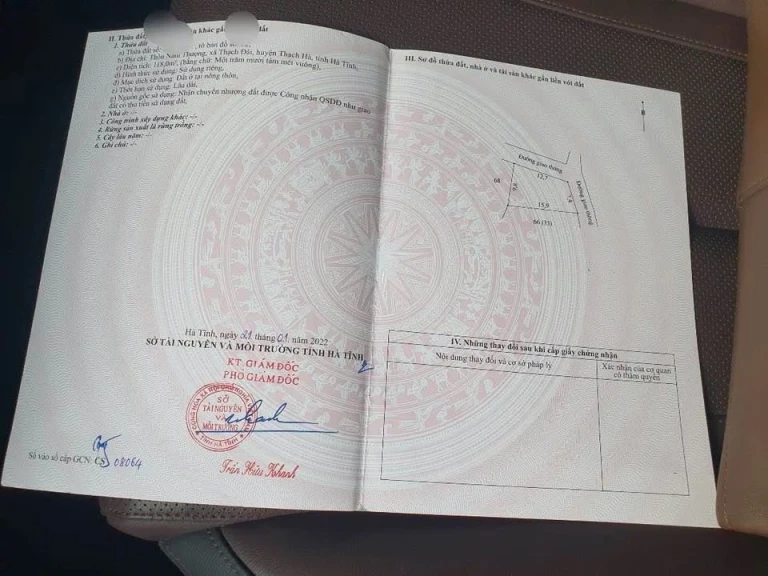 II. Thửa đất, khác gắn đất
1. Thửa đất
a) Thửa đất số: , tờ bản đồ số:
b) Địa chỉ: Thôn Nam Thượng, xã Thạch Đài, huyện Thạch Hà, tỉnh Hà Tĩnh,
c) Diện tích: 118,0m², (bằng chữ: Một trăm mười tám mét vuông),
d) Hình thức sử dụng: Sử dụng riêng,
đ) Mục đích sử dụng: Đất ở tại nông thôn,
e) Thời hạn sử dụng: Lâu dài,
g) Nguồn gốc sử dụng: Nhận chuyển nhượng đất được Công nhận QSDĐ như giao
đất có thu tiền sử dụng đất.
2. Nhà ở: -/-
3. Công trình xây dựng khác: -/-
4. Rừng sản xuất là rừng trồng: -/-
5. Cây lâu năm: -/-
6. Ghi chú: -/-
Hà Tĩnh, ngày 21 tháng 01 năm 2022
SỞ TÀI NGUYÊN VÀ MÔI TRƯỜNG TỈNH HÀ TĨNH
KT GIÁM ĐỐC
PHÓ GIÁM ĐỐC
SỞ
TÀI NGUYÊN
VÀ
MÔI TRƯỜNG
Trần Hữu Khanh
Số vào sổ cấp GCN: CS 08064
III. Sơ đồ thửa đất, nhà ở và tài sản khác gắn liền với đất
Đường giao thông
12,7
68
9,6
15,9
Đường giao thông
66 (33)
IV. Những thay đổi sau khi cấp giấy chứng nhận
Nội dung thay đổi và cơ sở pháp lý
Xác nhận của cơ quan
có thẩm quyền